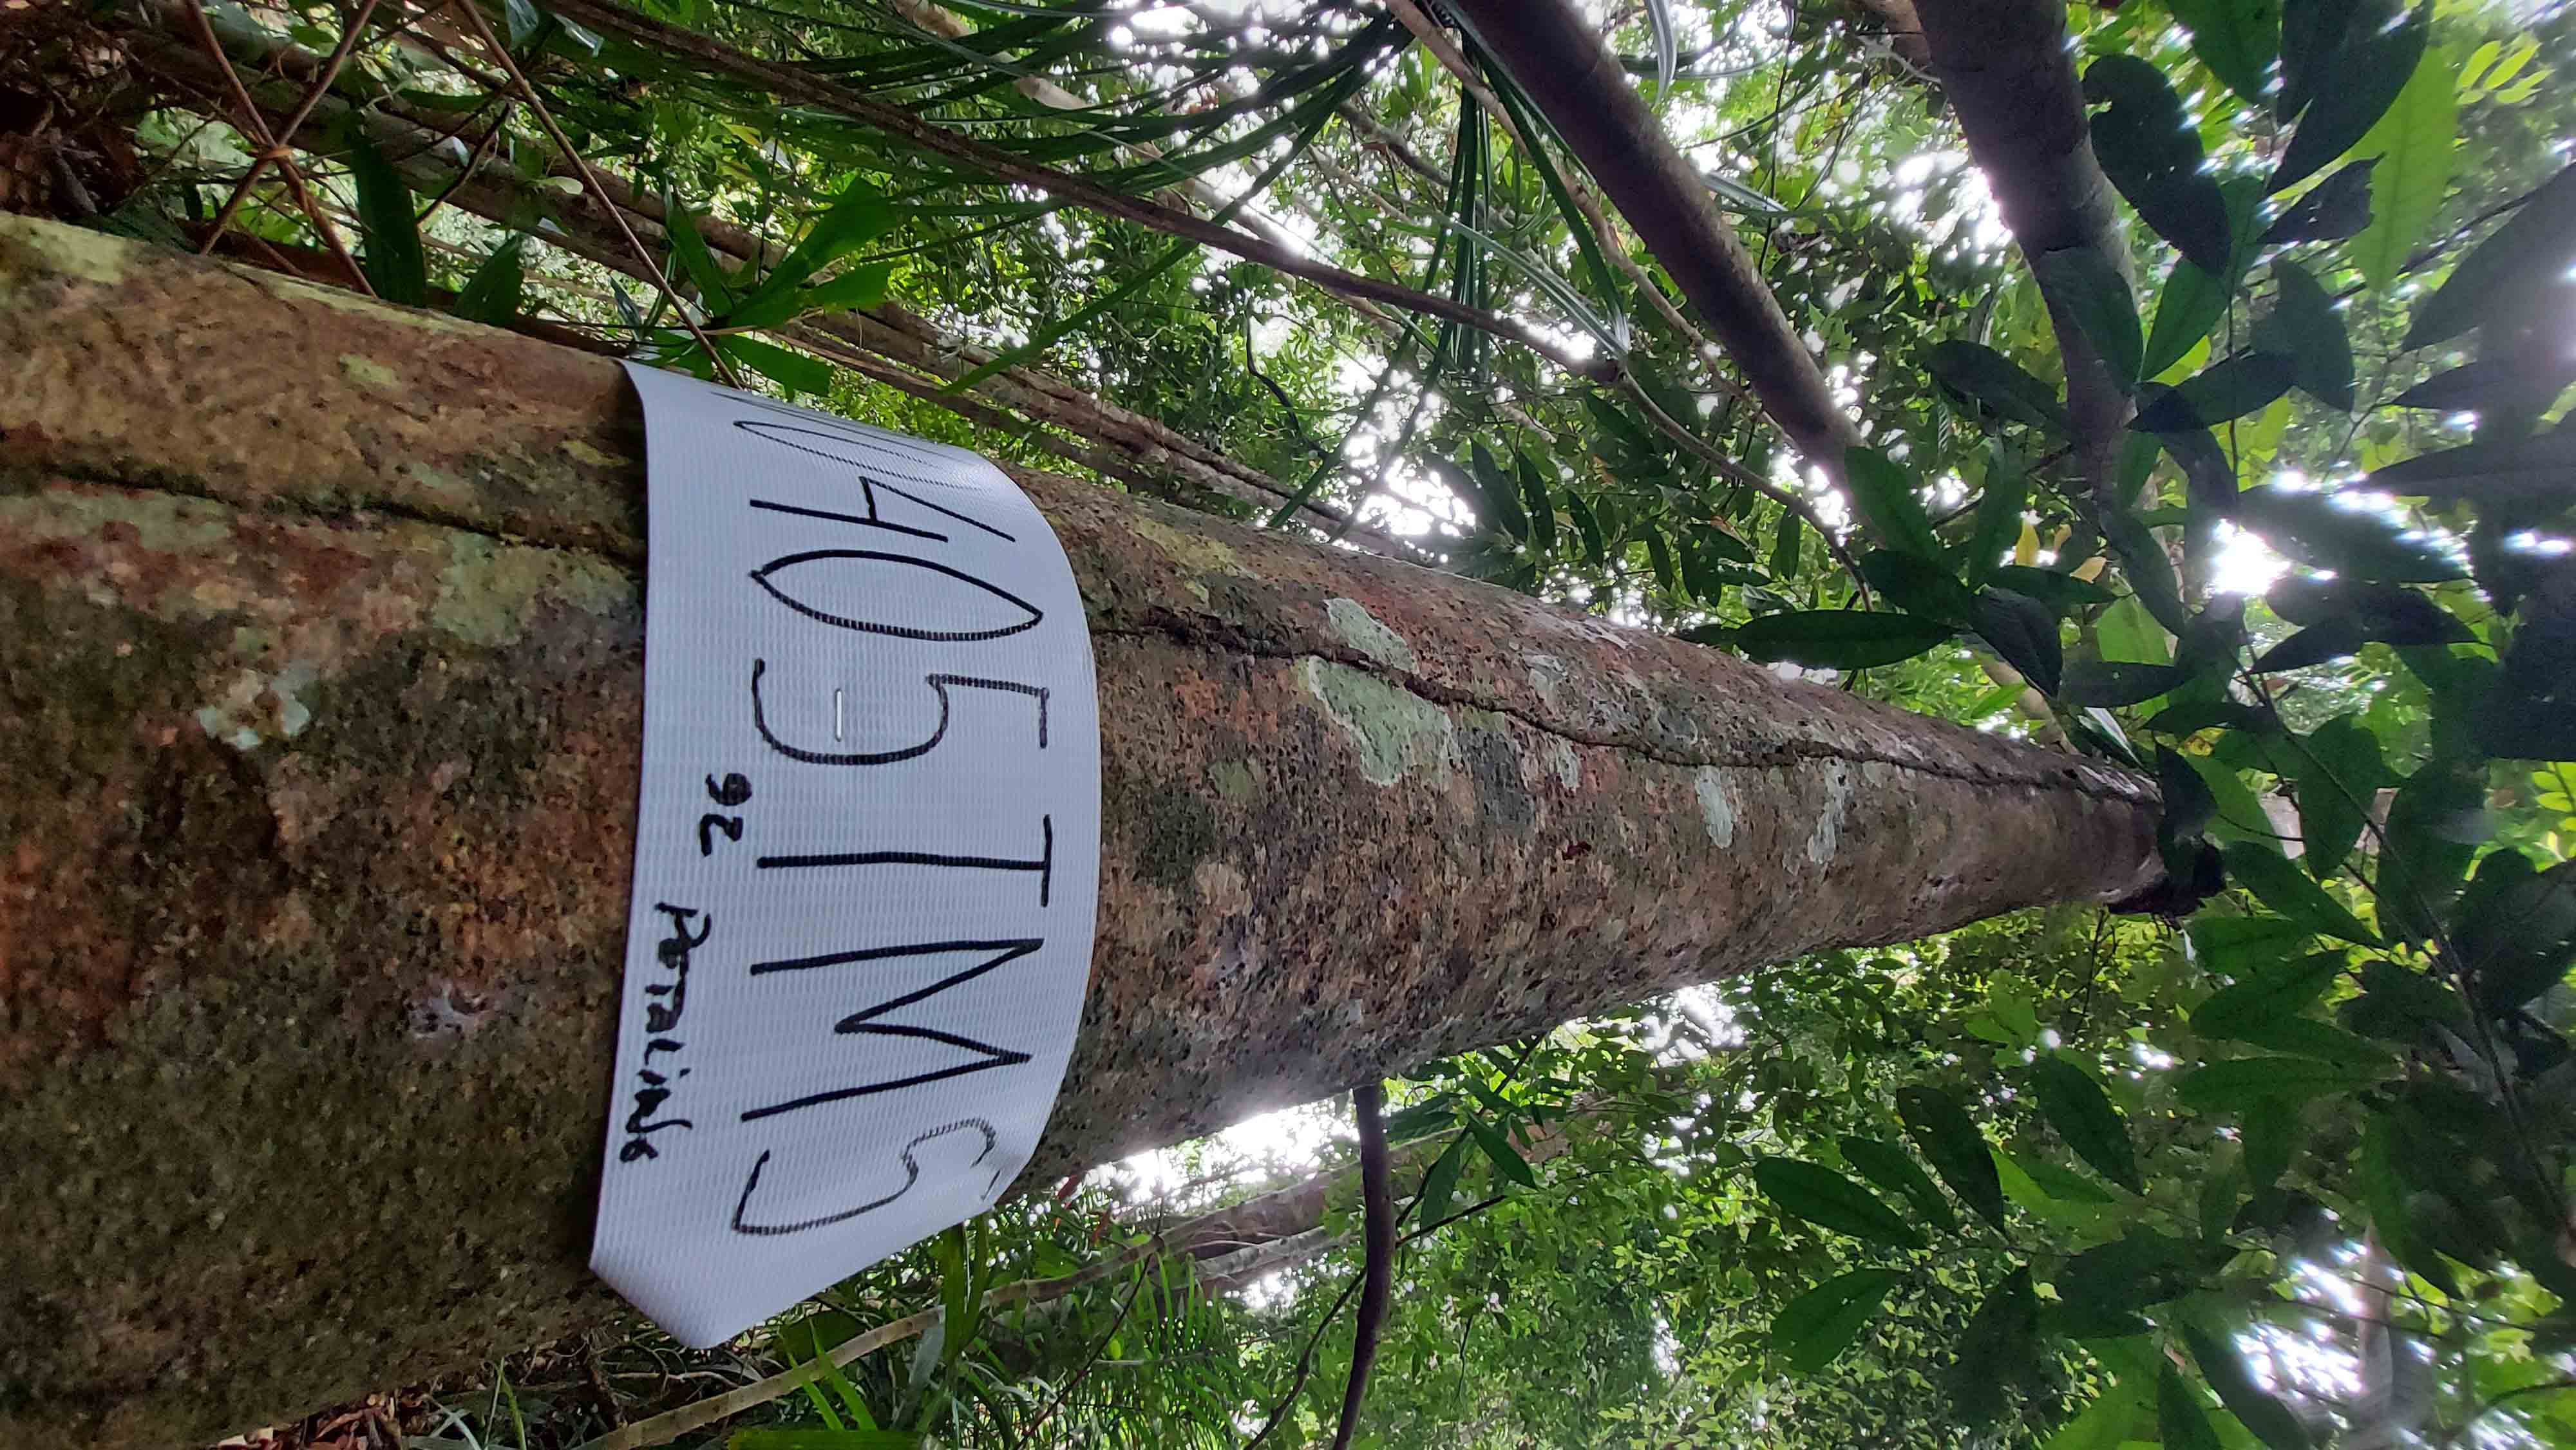 0405 TMS
92
PETALING